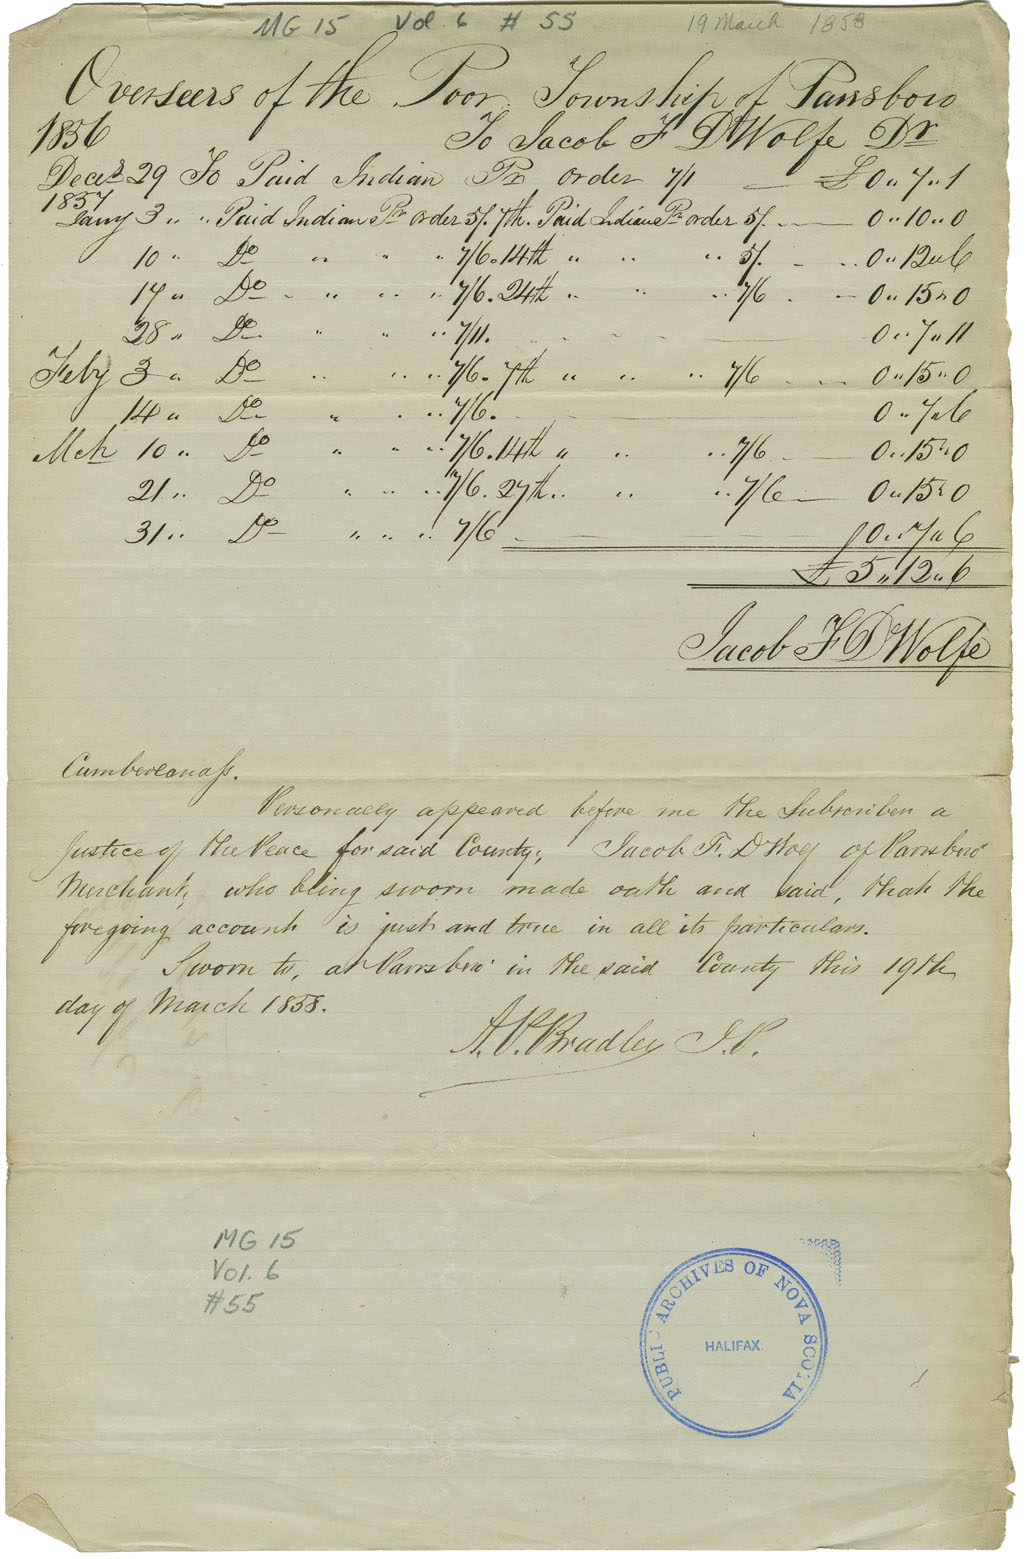 MG 15 Vol. 6 # 55 19 March 1858
Overseers of the Poor, Township of Parrsboro
1856 To Jacob F D'Wolfe Dr
Decr 29 To Paid Indian Pr order 7/1 — £ 0 " 7 " 1
1857
Jany 3 " " Paid Indian Pr order 5/. 7th. Paid Indian Pr order 5/. — 0 " 10 " 0
10 " Do " " " 7/6. 14th " " " 5/. — 0 " 12 " 6
17 " Do " " " 7/6. 24th " " " 7/6 — 0 " 15 " 0
28 " Do " " " 7/11. — 0 " 7 " 11
Feby 3 " Do " " " 7/6. 7th " " " 7/6 — 0 " 15 " 0
14 " Do " " " 7/6. — 0 " 7 " 6
Mch 10 " Do " " " 7/6. 14th " " " 7/6 — 0 " 15 " 0
21 " Do " " " 7/6. 27th " " " 7/6 — 0 " 15 " 0
31 " Do " " " 7/6 — 0 " 7 " 6
£ 5 " 12 " 6
Jacob F D'Wolfe
Cumberland ss.
Personally appeared before me the Subscriber a
Justice of the Peace for said County, Jacob F. D'Wolf of Parrsboro'
Merchant, who being sworn made oath and said, that the
foregoing account is just and true in all its particulars.
Sworn to, at Parrsboro' in the said County this 19th
day of March 1858.
A. P. Bradley J. P.
MG 15
Vol. 6
#55
PUBLIC ARCHIVES OF NOVA SCOTIA
HALIFAX